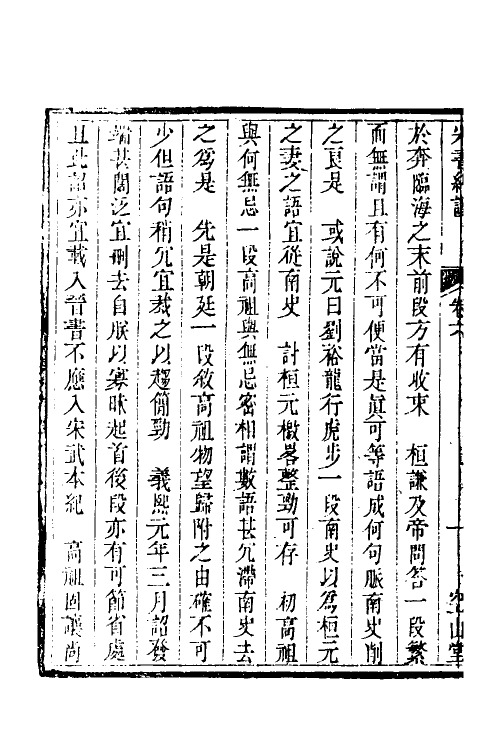 於奔臨海之末前段方有收束　桓謙及帝問答一段繁
而無謂且有何不可便當是眞可等語成何句脈南史削
之良是　或說元曰劉裕龍行虎步一段南史以爲桓元
之妻之語宜從南史　討桓元檄畧整勁可存　初高祖
與何無忌一段高祖與無忌密相謂數語甚冗滯南史去
之爲是　先是朝廷一段敘高祖物望歸附之由確不可
少但語句稍冗宜裁之以趨簡勁　義熙元年三月詔發
端甚闊泛宜刪去自朕以寡昧起首後段亦有可節省處
且此詔亦宜載入晉書不應入宋武本紀　高祖固讓尚